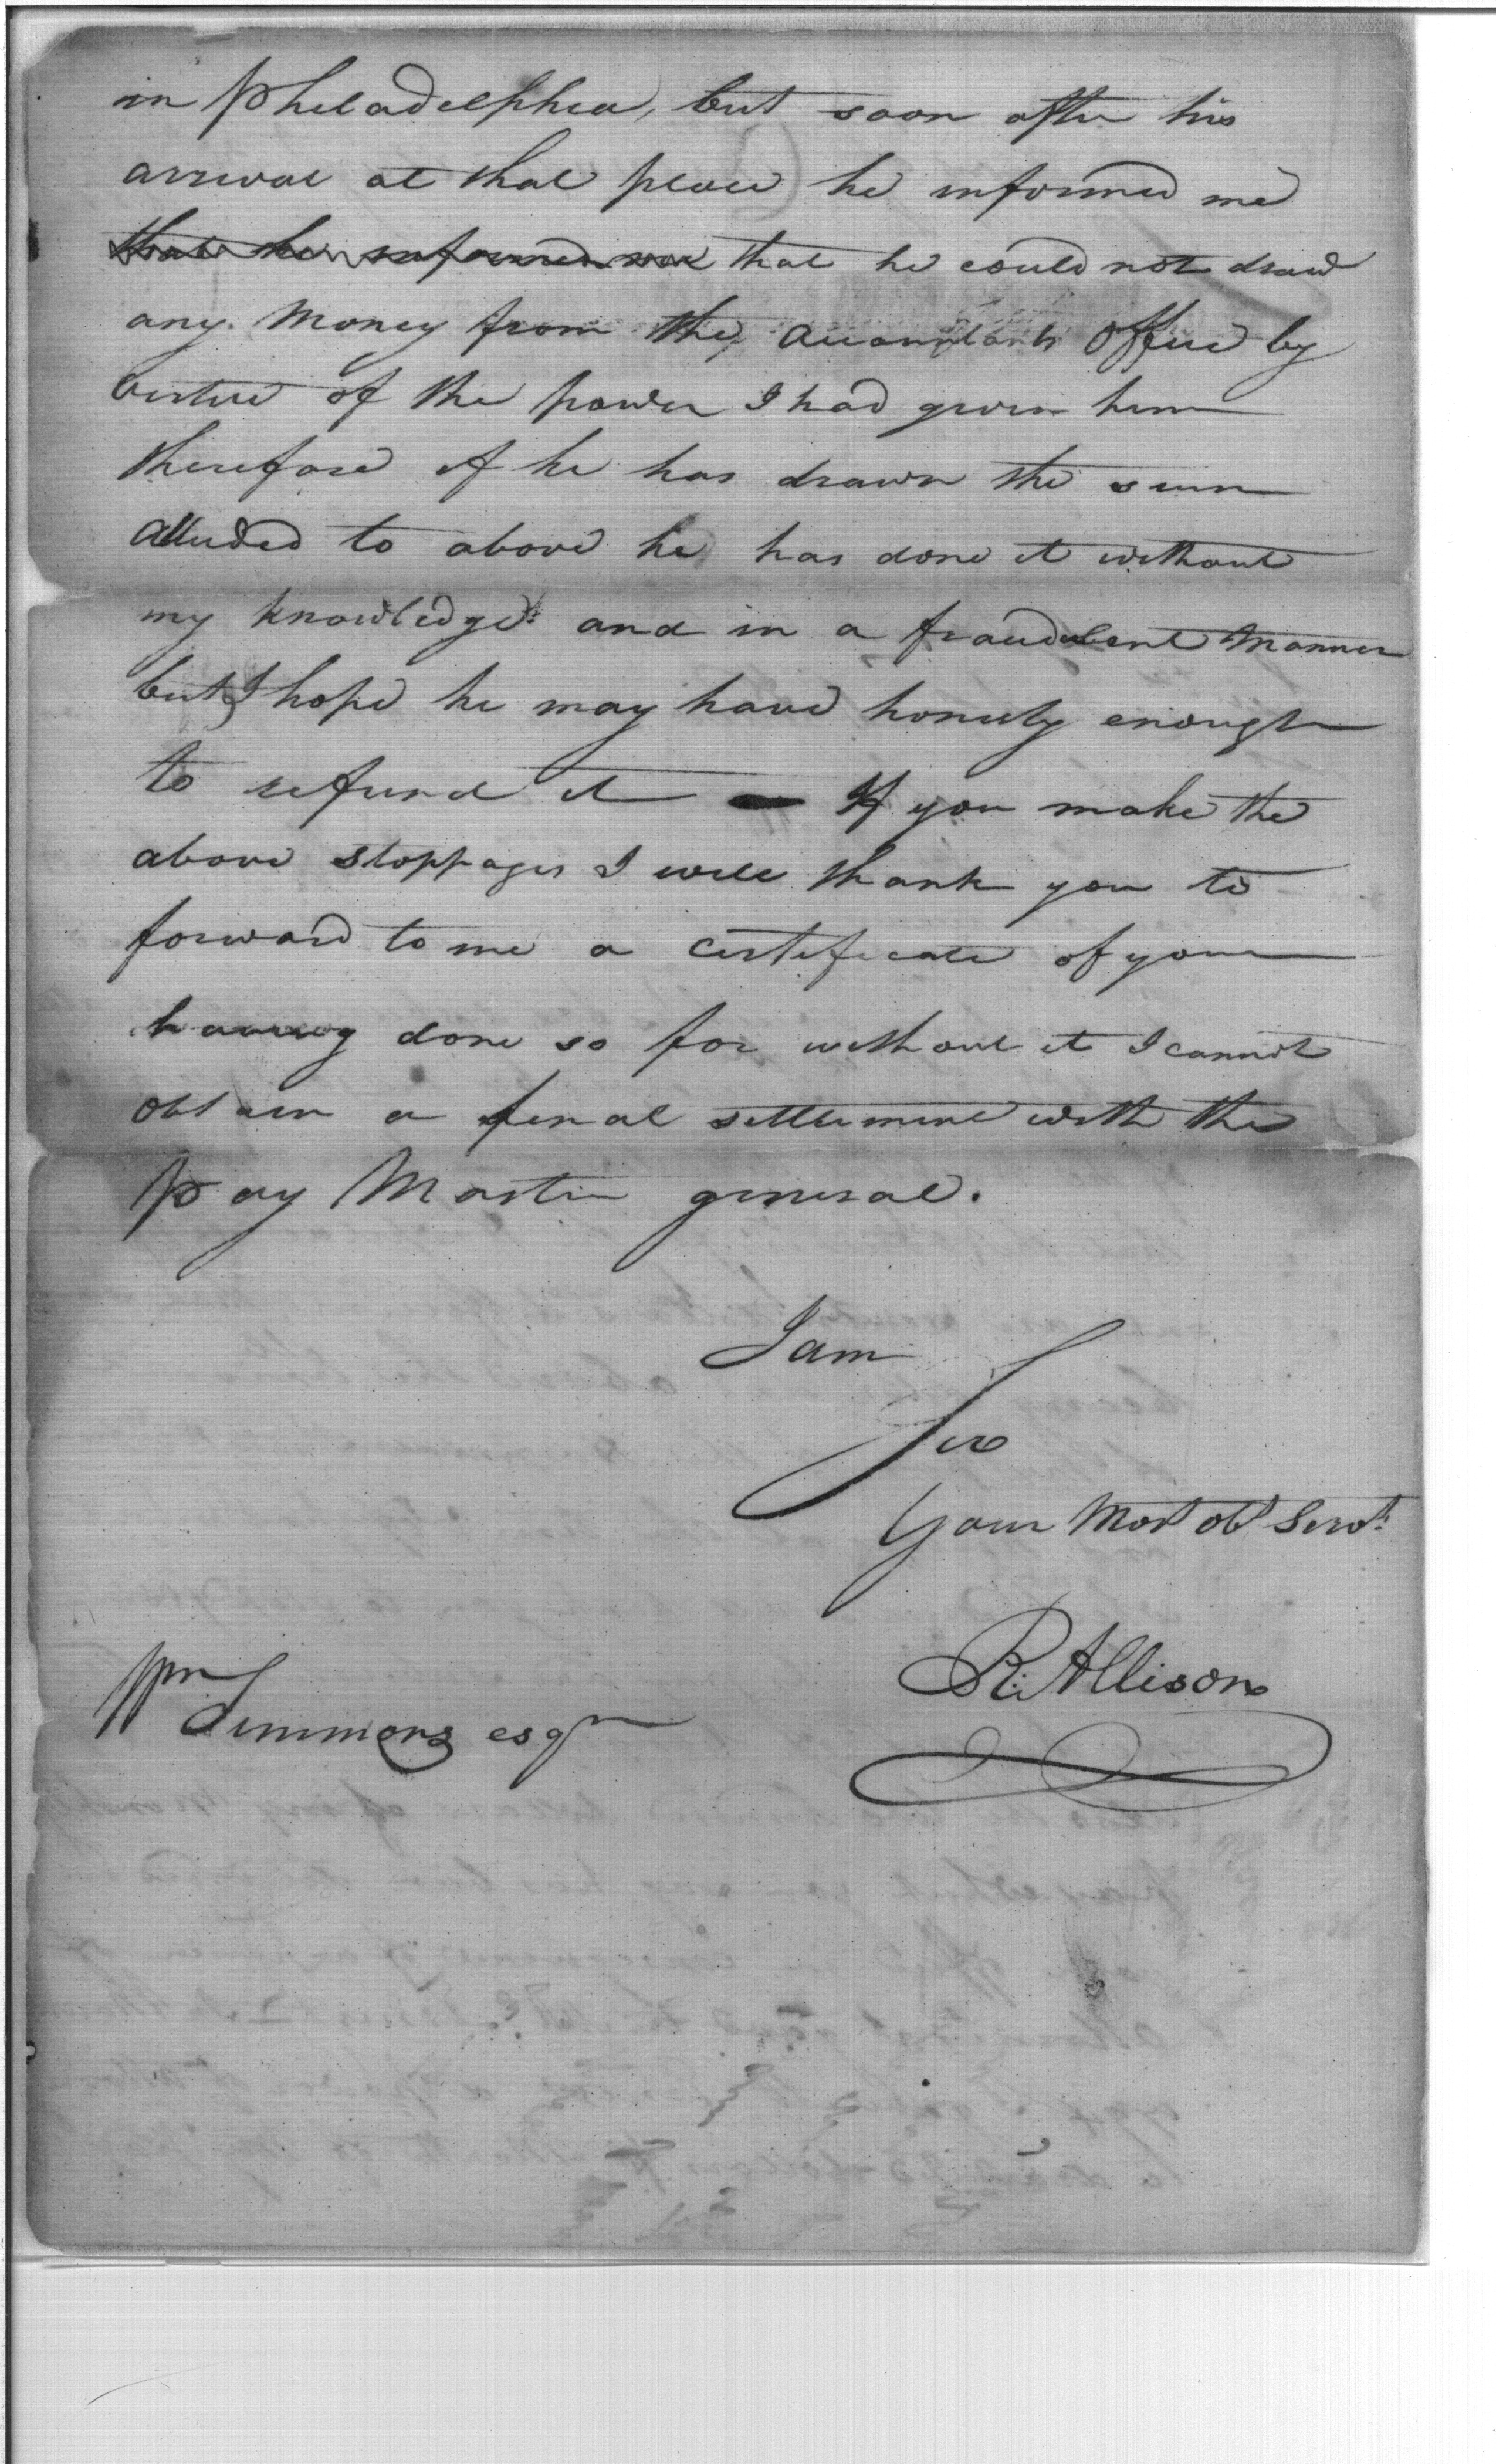 in Philadelphia, but soon after his
arrival at that place he informed me
that he informed me that he could not draw
any Money from the Accountants Office by
virtue of the power I had given him
therefore if he has drawn the sum
alluded to above he has done it without
my knowledge and in a fraudulent Manner
but I hope he may have honesty enough
to refund it — If you make the
above stoppages I will thank you to
forward to me a certificate of your
having done so for without it I cannot
obtain a final settlement with the
Pay Master general.
I am
Sir
Your Mos ob Servt.
R: Allison
Wm
Simmons esqr